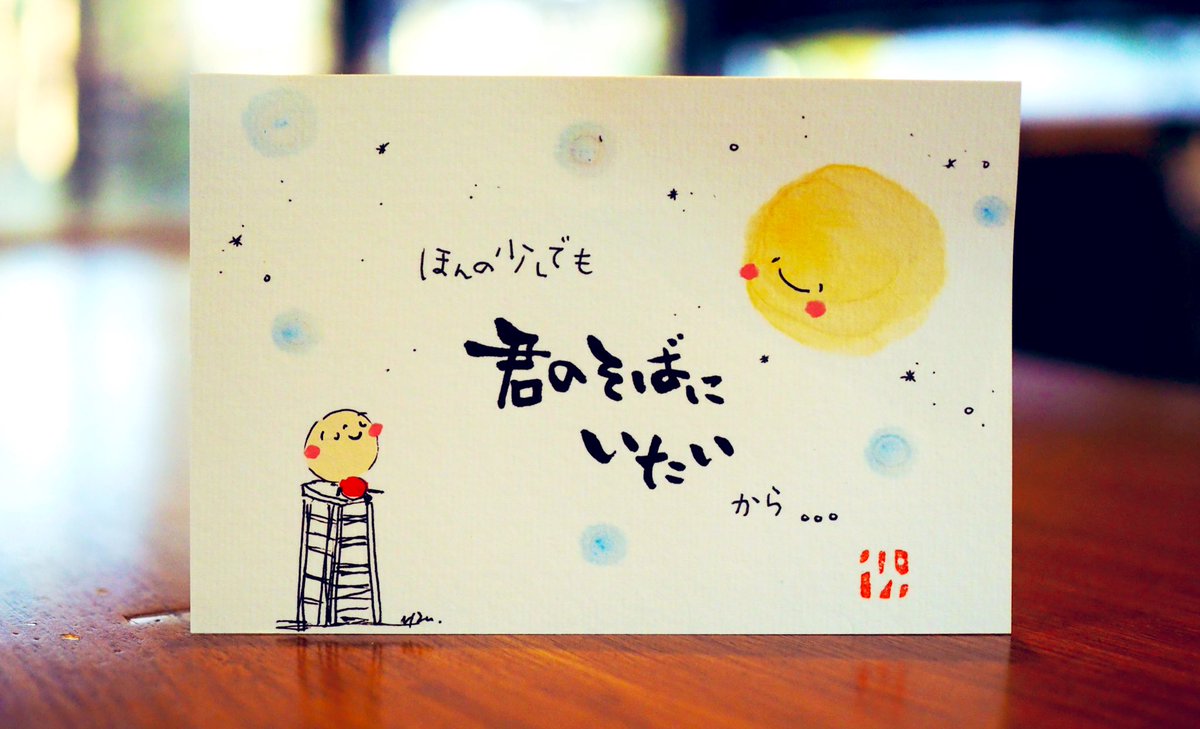 ほんの少しでも
君のそばに
いたい
から...